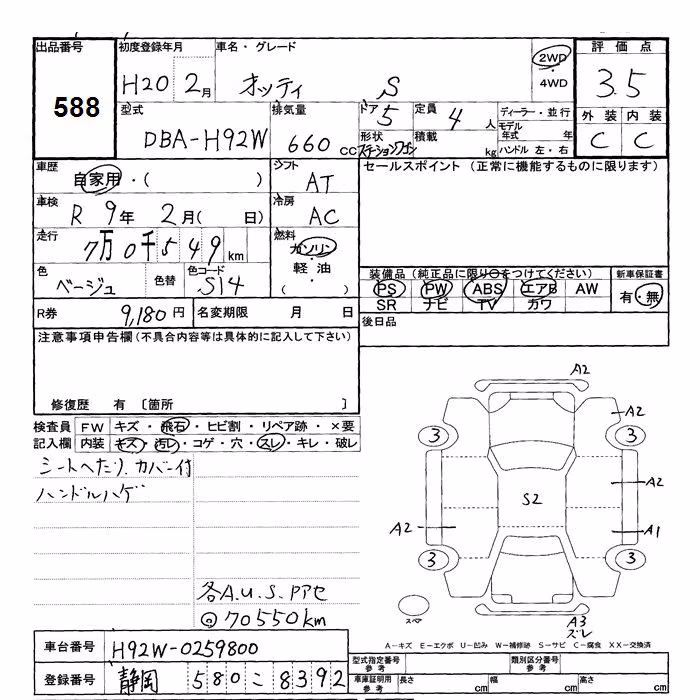 出品番号 初度登録年月 車名・グレード 評価点
588 H20 2月 オッティ S 2WD・4WD 3.5
型式 排気量 ドア 5 定員 4人 ディーラー・並行 外装 内装
DBA-H92W 660cc 形状 ステーションワゴン 積載 kg モデル年式 年 ハンドル 左・右 C C
車歴 自家用・( ) シフト AT セールスポイント (正常に機能するものに限ります)
車検 R9年 2月( 日) 冷房 AC
走行 7万0千549km 燃料 ガソリン・軽油 ( )
色 ベージュ 色替 色コード S14 装備品(純正品に限り○をつけてください) 新車保証書
PS PW ABS エアB AW 有・無
SR ナビ TV カワ
R券 9,180円 名変期限 月 日 後日品
注意事項申告欄(不具合内容等は具体的に記入して下さい)
修復歴 有 〔箇所 〕
検査員記入欄 FW キズ・飛石・ヒビ割・リペア跡・×要
内装 キズ・汚レ・コゲ・穴・スレ・キレ・破レ
シートへたり.カバー付
ハンドルハゲ
A2
A2
3 3
A2
S2
A2 A1
3 3
スペア
A3
ズレ
各A.u.S.Pアセ
70550km
A-キズ E-エクボ U-凹み W-補修跡 S-サビ C-腐食 XX-交換済
車台番号 H92W-0259800 型式指定番号 参考 類別区分番号 参考
登録番号 静岡 580 こ 8392 車庫証明用 参考 長さ cm 幅 cm 高さ cm